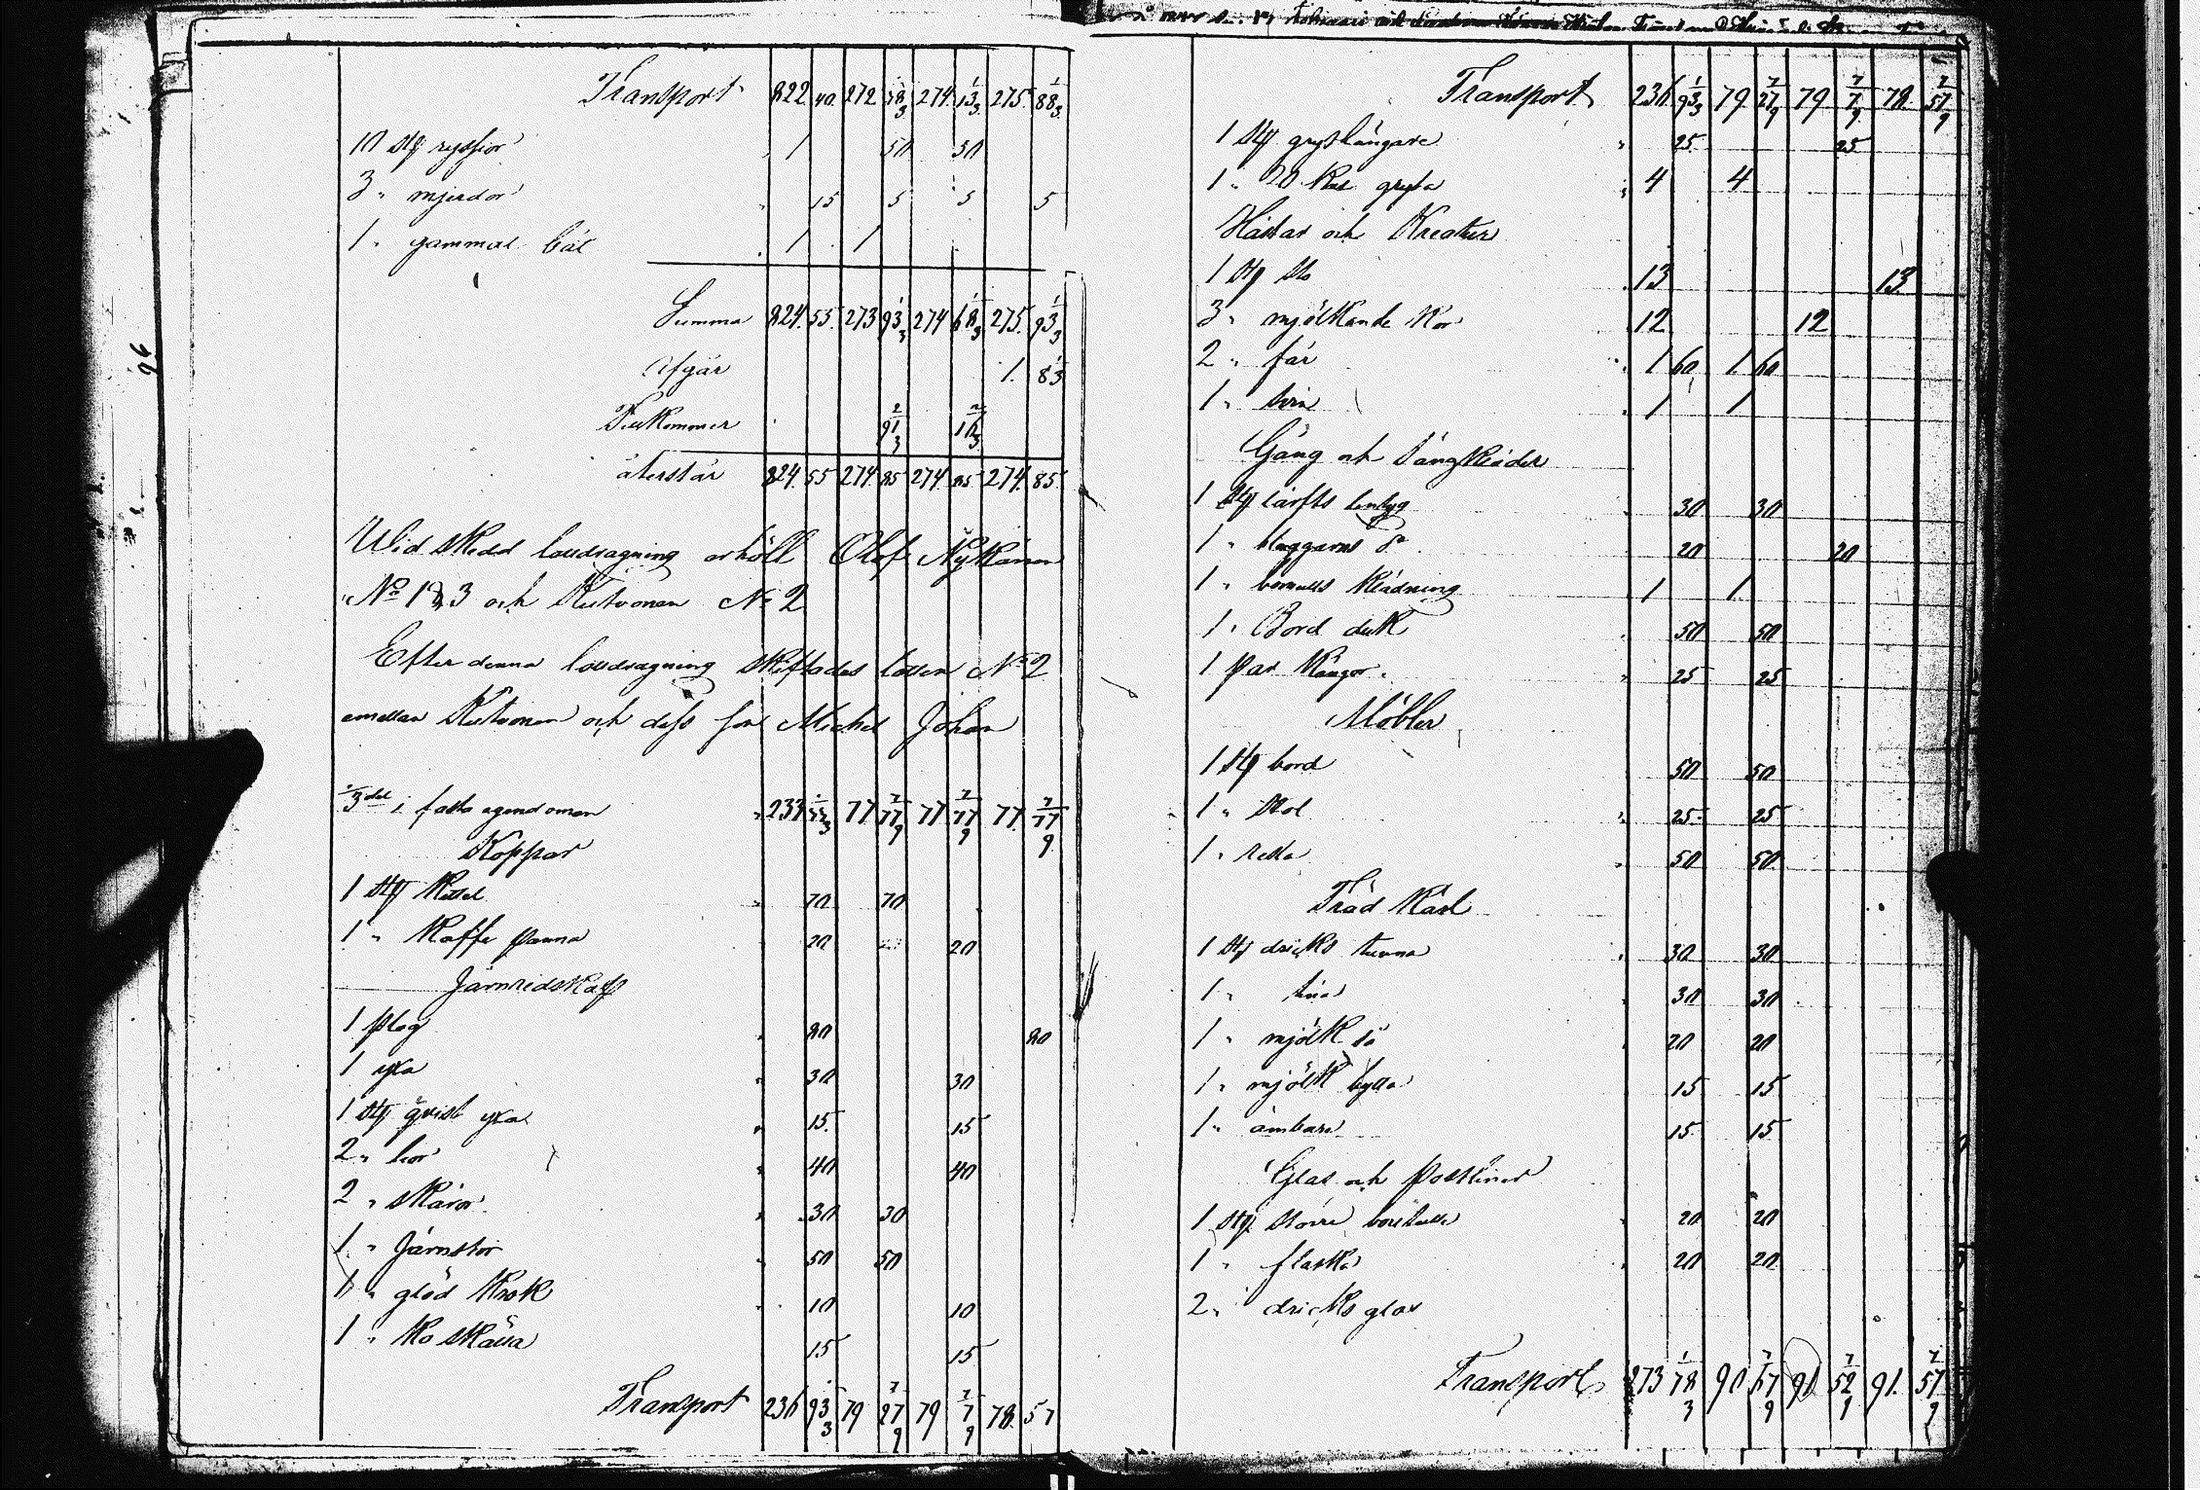 Transport 822 40 272 78 1/3 274 13 1/3 275 88 1/3
10 stg ryssior 1 50 50
3 " mjerdor 15 5 5 5
1 " gammal båt 1 1
Summa 824 55 273 93 1/3 274 68 1/3 275 93 1/3
Afgår 1 8 1/3
Tillkommer 91 2/3 16 2/3
återstår 824 55 274 85 274 85 274 85
Wid skedd lottdragning erhöll Olof Nykänen
No 1 & 3 och Enkan No 2
Efter denna lottdragning skiftades lotten No 2
emellan och dess son Michel Johan
1/3 del i fasta egendomen 233 33 1/3 77 77 7/9 77 77 7/9 77 77 7/9
Koppar
1 stg Kittel 70 70
1 " Kaffe panna 20 20
Järnredskap
1 plog 80 80
1 yxa 30 30
1 stg qvist yxa 15 15
2 " liar 40 40
2 " skäror 30 30
1 " Järnstör 50 50
1 " glöd krok 10 10
1 " Ko skälla 15 15
Transport 236 93 1/3 79 27 7/9 79 7 7/9 78 57
96
Transport 236 93 1/3 79 27 7/9 79 7 7/9 78 57 7/9
1 stg grythängare 25 25
1 " 20 gryta 4 4
Hästar och Kreatur
1 stg sto 13 13
3 " mjölkande Kor 12 12
2 " får 1 60 1 60
1 " svin 1 1
Gång och Sängkläder
1 stg lärfts 30 30
1 " blaggarns do 20 20
1 " bomulls klädning 1 1
1 " Bord duk 50 50
1 par kängor 25 25
Möbler
1 stg bord 50 50
1 " stol 25 25
1 " 50 50
Träd kärl
1 stg dricks tunna 30 30
1 " tina 30 30
1 " mjölk så 20 20
1 " mjölk bytta 15 15
1 " ämbare 15 15
Glas och postliner
1 stg större 20 20
1 " flaska 20 20
2 " dricks glas
Transport 273 78 1/3 90 67 7/9 91 52 7/9 91 57 7/9